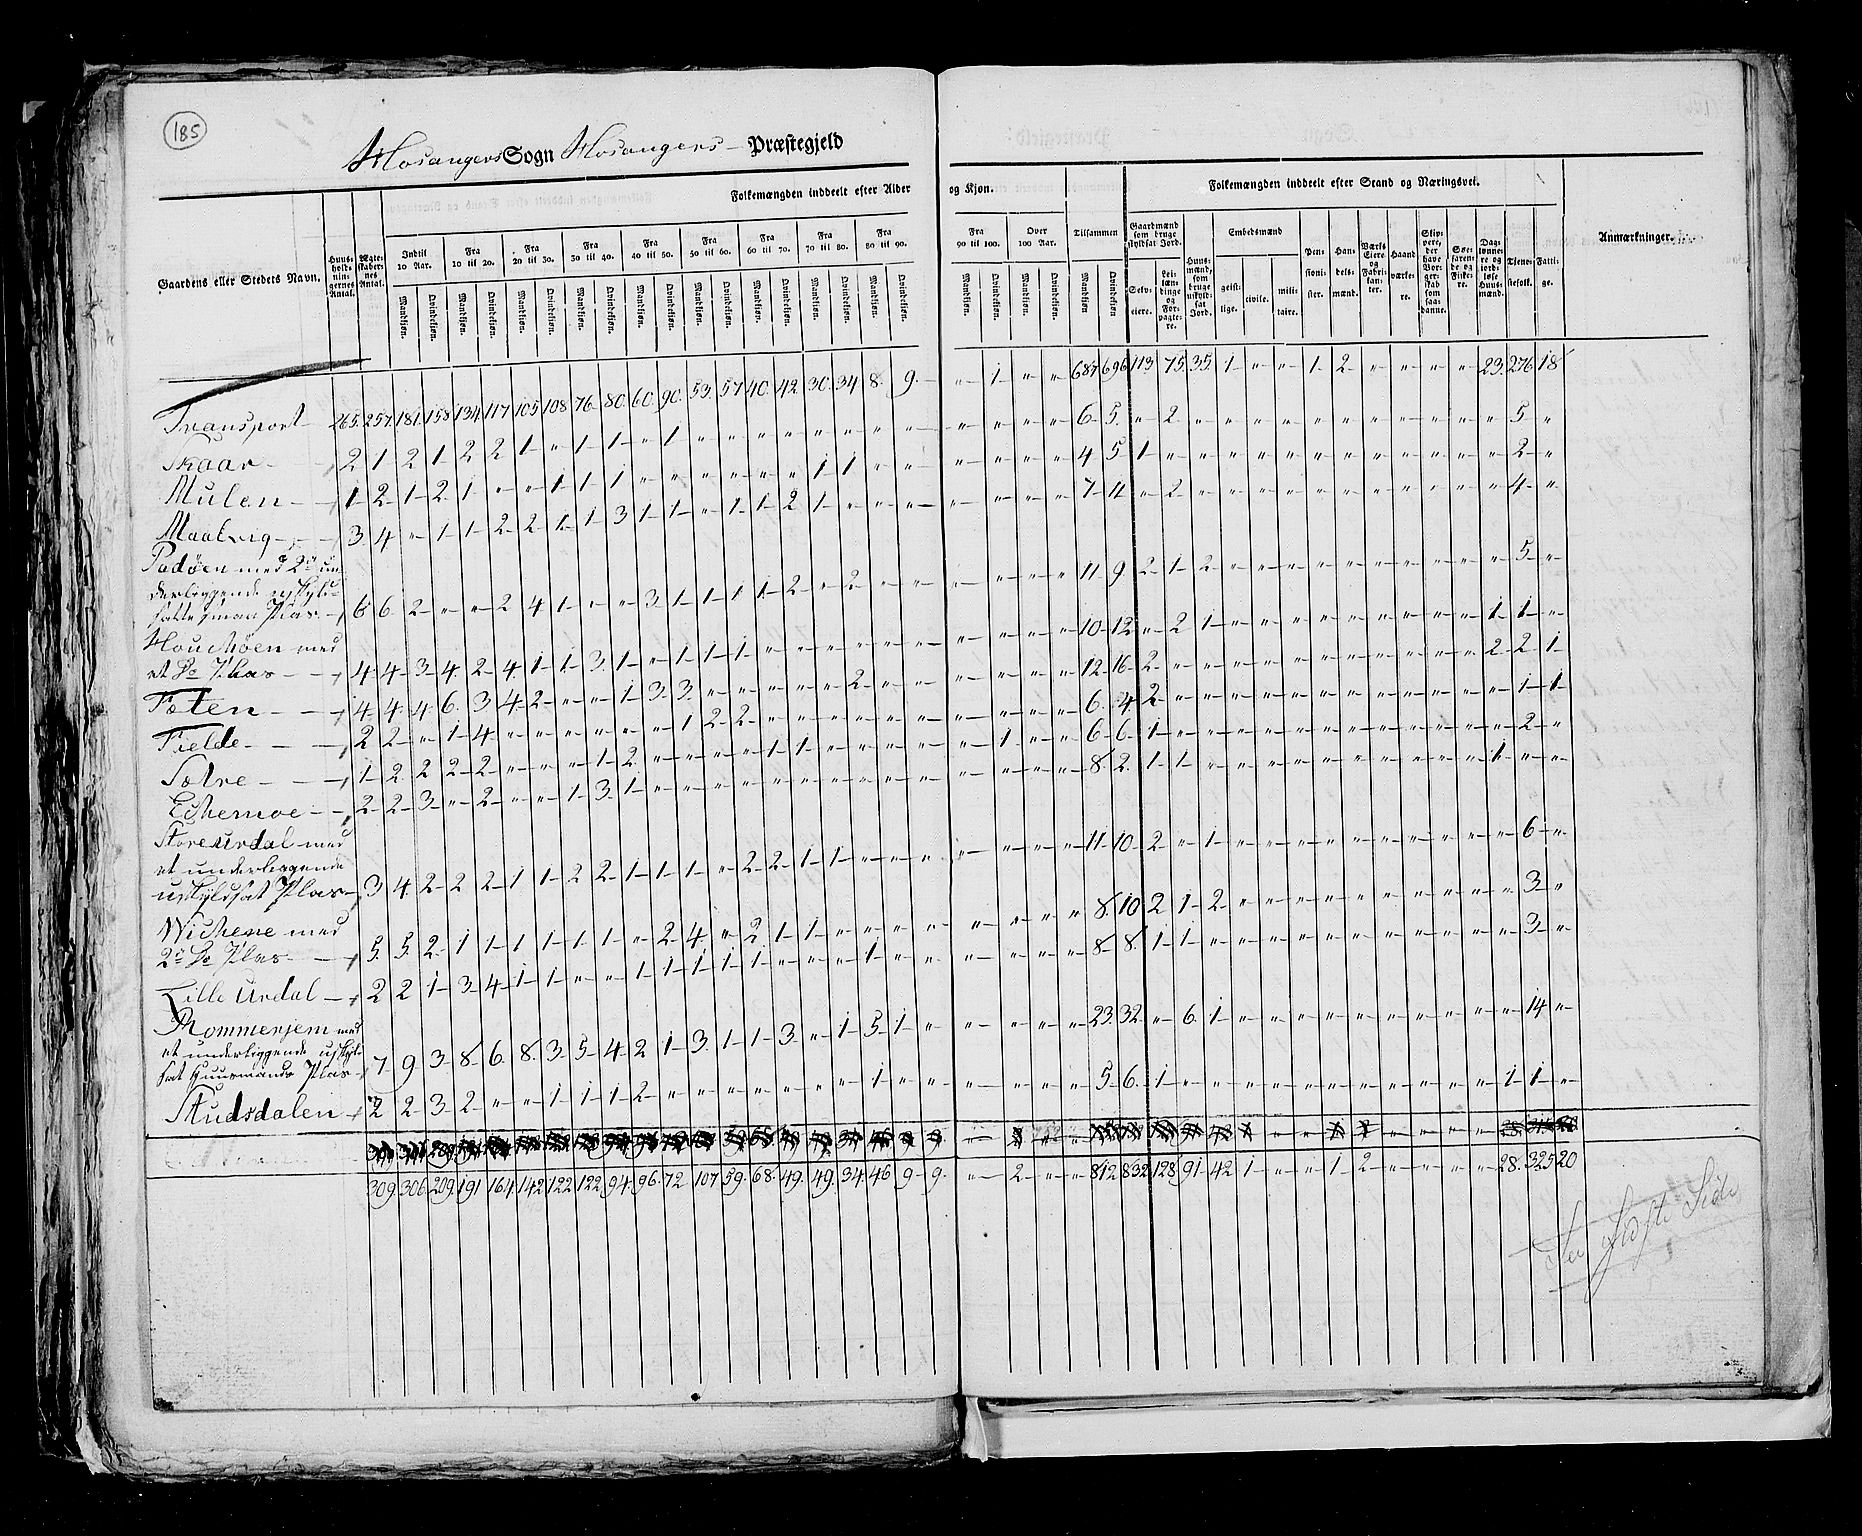 185
Hosangers Sogn Hosangers Præstegjeld
Folkemængden inddeelt efter Alder og Kjøn.
Folkemængden inddeelt efter Stand og Næringsvei.
Gaardens eller Stedets Navn.
Huusholdningernes Antal.
Ægteskabernes Antal.
Indtil 10 Aar.
Fra 10 til 20.
Fra 20 til 30.
Fra 30 til 40.
Fra 40 til 50.
Fra 50 til 60.
Fra 60 til 70.
Fra 70 til 80.
Fra 80 til 90.
Fra 90 til 100.
Over 100 Aar.
Tilsammen
Mandkjøn. Qvindekjøn.
Gaardmænd som bruge skyldsat Jord.
Selveiere.
Leilændinge og Forpagtere.
Huusmænd, som bruge uskyldsat Jord.
Embedsmænd
geistlige. civile. militaire.
Pensionister.
Handelsmænd.
Værks Eiere og Fabrikanter.
Haandværkere.
Skippere, der have Borgerskab som saadanne.
Søefarende og Fiskere.
Daglønnere og jordløse Huusmænd.
Tjenestefolk.
Fattige.
Anmærkninger.
Transport 265. 257. 181. 158 134. 117 105 108 76. 80. 60. 90. 53. 57 40. 42. 30. 34 8. 9. " 1 " " 687 696 113 75. 35 1 " " 1 2 " " " " 23. 276 18
Skaar 2 1 2 1 2 2 1 " 1 1 " 1 " " " " " " " " " " " " 6 5. " 2 " " " " " " " " " " " 5 "
Mulen 1 2 1 2 1 " " 1 1 1 " " " " " " 1 1 " " " " " " 4 5 1 " " " " " " " " " " " " 2 "
Maalvig 3 4 " 1 1 2 2 1 1 3 1 1 " 1 1 2 1 " " " " " " " 7 11 " 2 " " " " " " " " " " " 4 "
Padøen med 2de un
derliggende uskyld
satte smaa Plas. 6 6 2 " " 2 4 1 " " 3 1 1 1 1 2 " 2 " " " " " " 11 9 2 1 2 " " " " " " " " " " 5 "
med
et Do Plas 4 4 3 4 2 4 1 1 3 1 " 1 1 1 " " " " " " " " " " 10 12 " 2 1 " " " " " " " " " 1 1 "
Foten 4 4 4 6. 3 4 2 " " 1 3 3 " " " " " 2 " " " " " " 12 16 2 " " " " " " " " " " " 2 2 1
Tielde 2 2 " 1 4 " " " " " " 1 2 2 " " " " " " " " " " 6 4 2 " " " " " " " " " " " " 1 1
Sætre 1 2 2 2 2 " " " 1 2 " " " " 1 1 " " " " " 1 " " 6 6 1 " " " " " " " " " " " " 2 "
Echemoe 2 2 3 " 2 " " 1 3 1 " " " " " " " " " " " " " " 8 2 1 1 " " " " " " " " " " 1 " "
Store Urdal med
et underliggende
uskyldsat Plas 3 4 2 2 2 1 1 2 2 1 1 1 " 2 2 1 1 " " " " " " " 11 10 2 " 1 " " " " " " " " " " 6 "
Wichene med
2de Do Plas 5 5 2 1 1 1 1 1 1 " 2 4 " 2 1 1 " " " " " " " " 8 10 2 1 2 " " " " " " " " " " 3 "
Lille Urdal 2 2 1 3 4 1 1 " " 1 1 1 1 1 " " " 1 " " " " " " 8 8. 1 1 " " " " " " " " " " " 3 "
Rommerjem med
et underliggende uskyld
sat Huusmands Plas 7 9 3 8 6 8 3 5 4 2 1 3 1 1 3 " 1 5 1 " " " " " 23. 32 " 6. 1 " " " " " " " " " " 14 "
Studsdalen 2 2 3 2 " " 1 1 1 2 " " " " " " " 1 " " " " " " 5 6 1 " " " " " " " " " " " 1 1 "
309. 306. 209. 191 164. 142 122 122. 94. 96. 72 107 59. 68. 49. 49. 34. 46 9 9. " 2 " " 812 832 128 91 42 1 " " 1 2 " " " " 28. 325 20
Se sidste Side